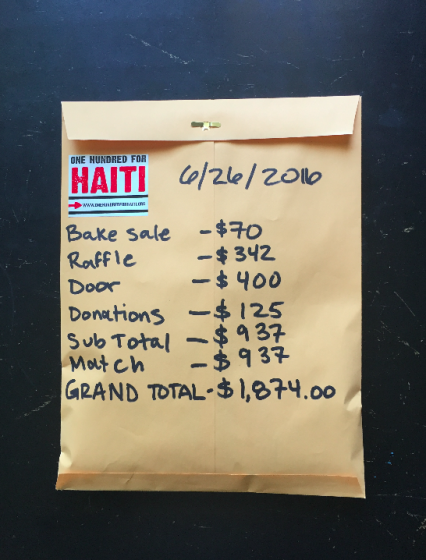 ONE HUNDRED FOR
HAITI
6/26/2016
Bake Sale - $70
Raffle - $342
Door - $400
Donations - $125
Sub Total - $937
Match - $937
GRAND TOTAL - $1,874.00